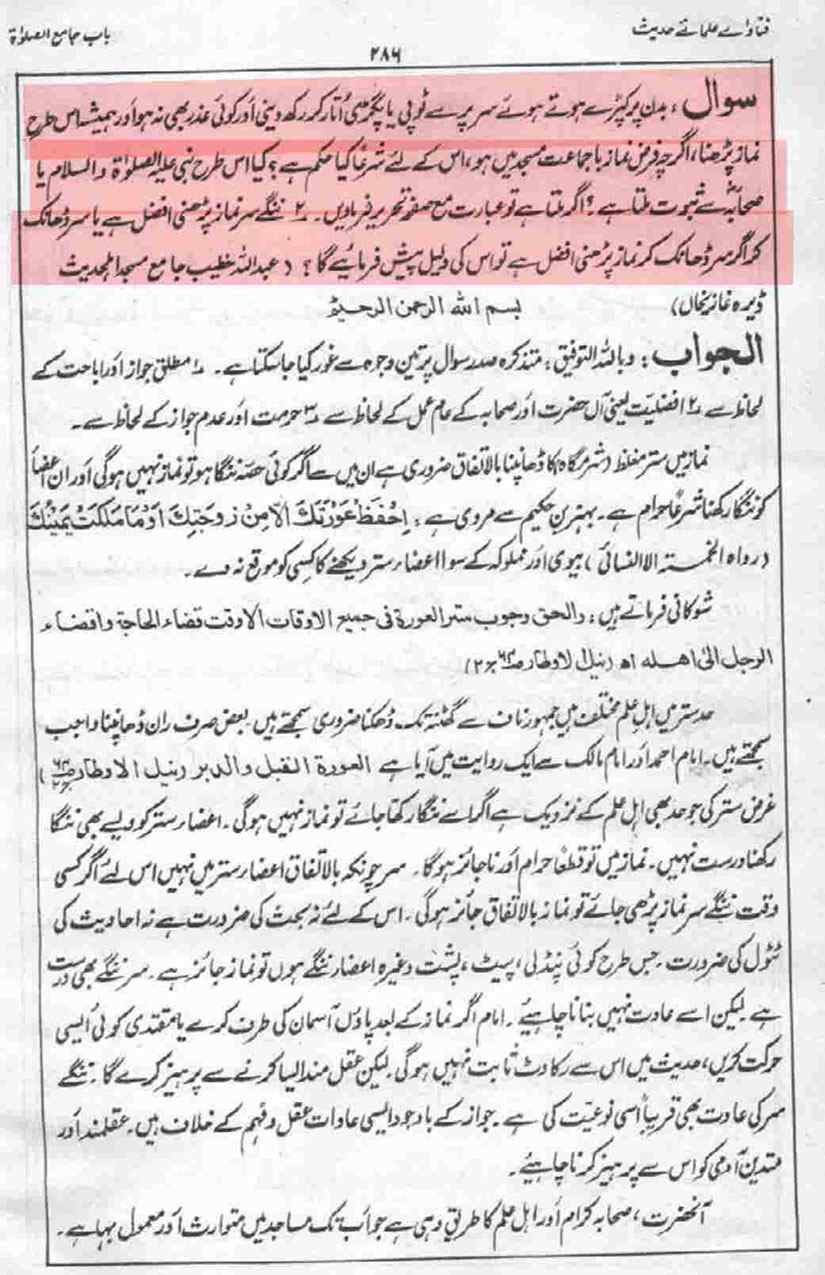 فتاوائے علمائے حدیث
باب جامع الصلوٰۃ
۲۸۶
سوال : بدن پر کپڑے ہوتے ہوئے سر پر سے ٹوپی یا پگڑی اُتار کر رکھ دینی اور کوئی عذر بھی نہ ہو اور ہمیشہ اس طرح
نماز پڑھنا، اگرچہ فرض نماز باجماعت مسجد میں ہو، اس کے لئے شرعًا کیا حکم ہے؟ کیا اس طرح نبی علیہ الصلوٰۃ والسلام یا
صحابہؓ سے ثبوت ملتا ہے؟ اگر ملتا ہے تو عبارت مع صفحہ تحریر فرمادیں۔ ۲؎ ننگے سر نماز پڑھنی افضل ہے یا سر ڈھانک
کر اگر سر ڈھانک کر نماز پڑھنی افضل ہے تو اس کی دلیل پیش فرمایئے گا؟ (عبداللہ خطیب جامع مسجد اہلحدیث
ڈیرہ غازیخاں) بسم اللہ الرحمن الرحیم
الجواب : وباللہ التوفیق : متذکرہ صدر سوال پر تین وجوہ سے غور کیا جا سکتا ہے۔ ۱؎ مطلق جواز اور اباحت کے
لحاظ سے ۲؎ افضلیّت یعنی آں حضرت اور صحابہ کے عام عمل کے لحاظ سے ۳؎ حرمت اور عدم جواز کے لحاظ سے۔
نماز میں ستر مغلظ (شرمگاہ) کا ڈھانپنا بالاتفاق ضروری ہے ان میں سے اگر کوئی حصّہ ننگا ہو تو نماز نہیں ہوگی اور ان اعضأ
کو ننگا رکھنا شرعًا حرام ہے۔ بہز بن حکیم سے مروی ہے : اِحْفَظْ عَوْرَتَكَ اِلَّا مِنْ زَوْجَتِكَ اَوْ مَا مَلَكَتْ يَمِيْنُكَ
(رواہ الخمسۃ الا النسائی) بیوی اور مملوکہ کے سوا اعضاء ستر دیکھنے کا کسی کو موقع نہ دے۔
شوکانی فرماتے ہیں : والحق وجوب ستر العورة فى جميع الاوقات الا وقت قضاء الحاجة وافضاء
الرجل الىٰ اهله اھ (نیل الاوطار ص۶۲ ج۲)
حد ستر میں اہل علم مختلف ہیں جمہور ناف سے گھٹنہ تک۔ ڈھکنا ضروری سمجھتے ہیں۔ بعض صرف ران ڈھانپنا واجب
سمجھتے ہیں۔ امام احمد اور امام مالک سے ایک روایت میں آیا ہے العورة القبل والدبر (نیل الاوطار ص۶۲ ج۲)
غرض ستر کی جو حد بھی اہل علم کے نزدیک ہے اگر اسے ننگا رکھا جائے تو نماز نہیں ہوگی۔ اعضاء ستر کو ویسے بھی ننگا
رکھنا درست نہیں۔ نماز میں تو قطعًا حرام اور ناجائز ہوگا۔ سر چونکہ بالاتفاق اعضاء ستر میں نہیں اس لئے اگر کسی
وقت ننگے سر نماز پڑھی جائے تو نماز بالاتفاق جائز ہوگی۔ اس کے لئے نہ بحث کی ضرورت ہے نہ احادیث کی
ٹٹول کی ضرورت۔ جس طرح کوئی پنڈلی، پیٹ، پشت وغیرہ اعضاء ننگے ہوں تو نماز جائز ہے۔ سر ننگے بھی درست
ہے لیکن اسے عادت نہیں بنانا چاہیئے۔ امام اگر نماز کے بعد پاؤں آسمان کی طرف کرے یا مقتدی کوئی ایسی
حرکت کریں، حدیث میں اس سے رکاوٹ ثابت نہیں ہوگی لیکن عقل مند ایسا کرنے سے پرہیز کرے گا۔ ننگے
سر کی عادت بھی قریبًا اسی نوعیّت کی ہے۔ جواز کے باوجود ایسی عادات عقل و فہم کے خلاف ہیں۔ عقلمند اور
متدیّن آدمی کو اس سے پرہیز کرنا چاہیئے۔
آنحضرت، صحابہ کرام اور اہل علم کا طریق وہی ہے جو اب تک مساجد میں متوارث اور معمول بہا ہے۔